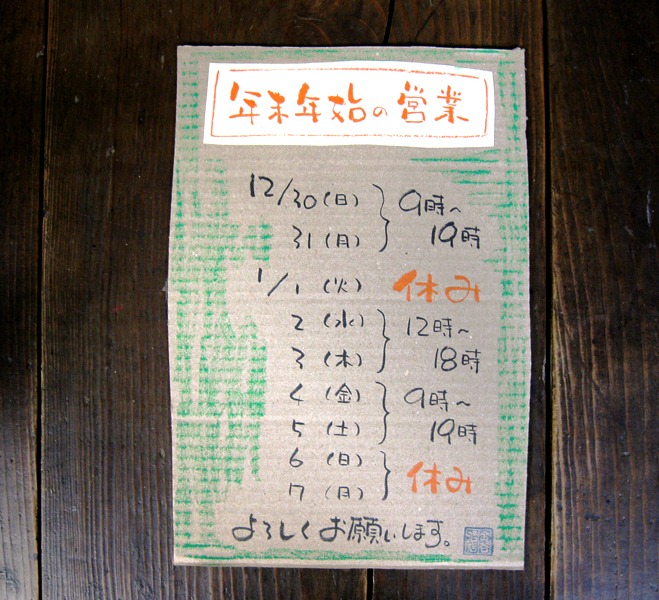 年末年始の営業
12/30(日) 9時~
31(月) 19時
1/1(火) 休み
2(水) 12時~
3(木) 18時
4(金) 9時~
5(土) 19時
6(日)
7(月) 休み
よろしくお願いします。